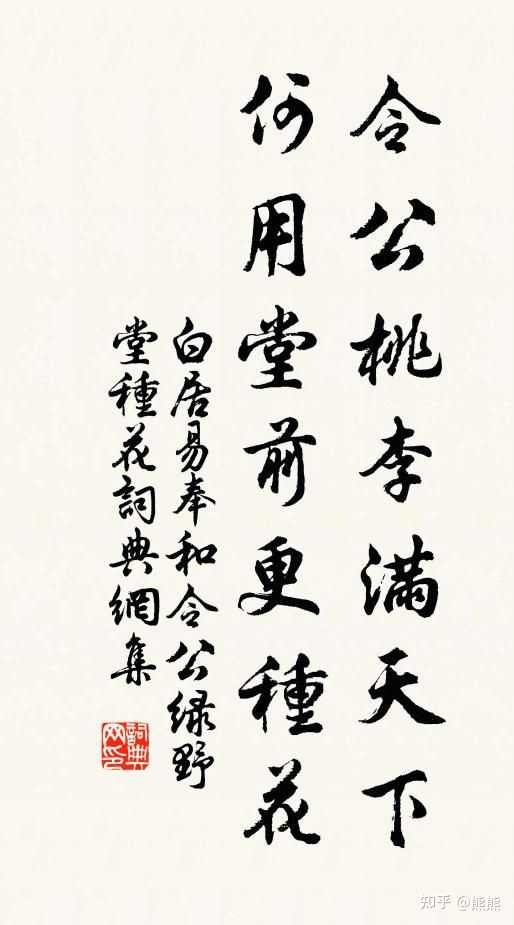 令公桃李滿天下
何用堂前更種花
白居易奉和令公緑野
堂種花詞典網集
詞典
网印
知乎 @熊熊